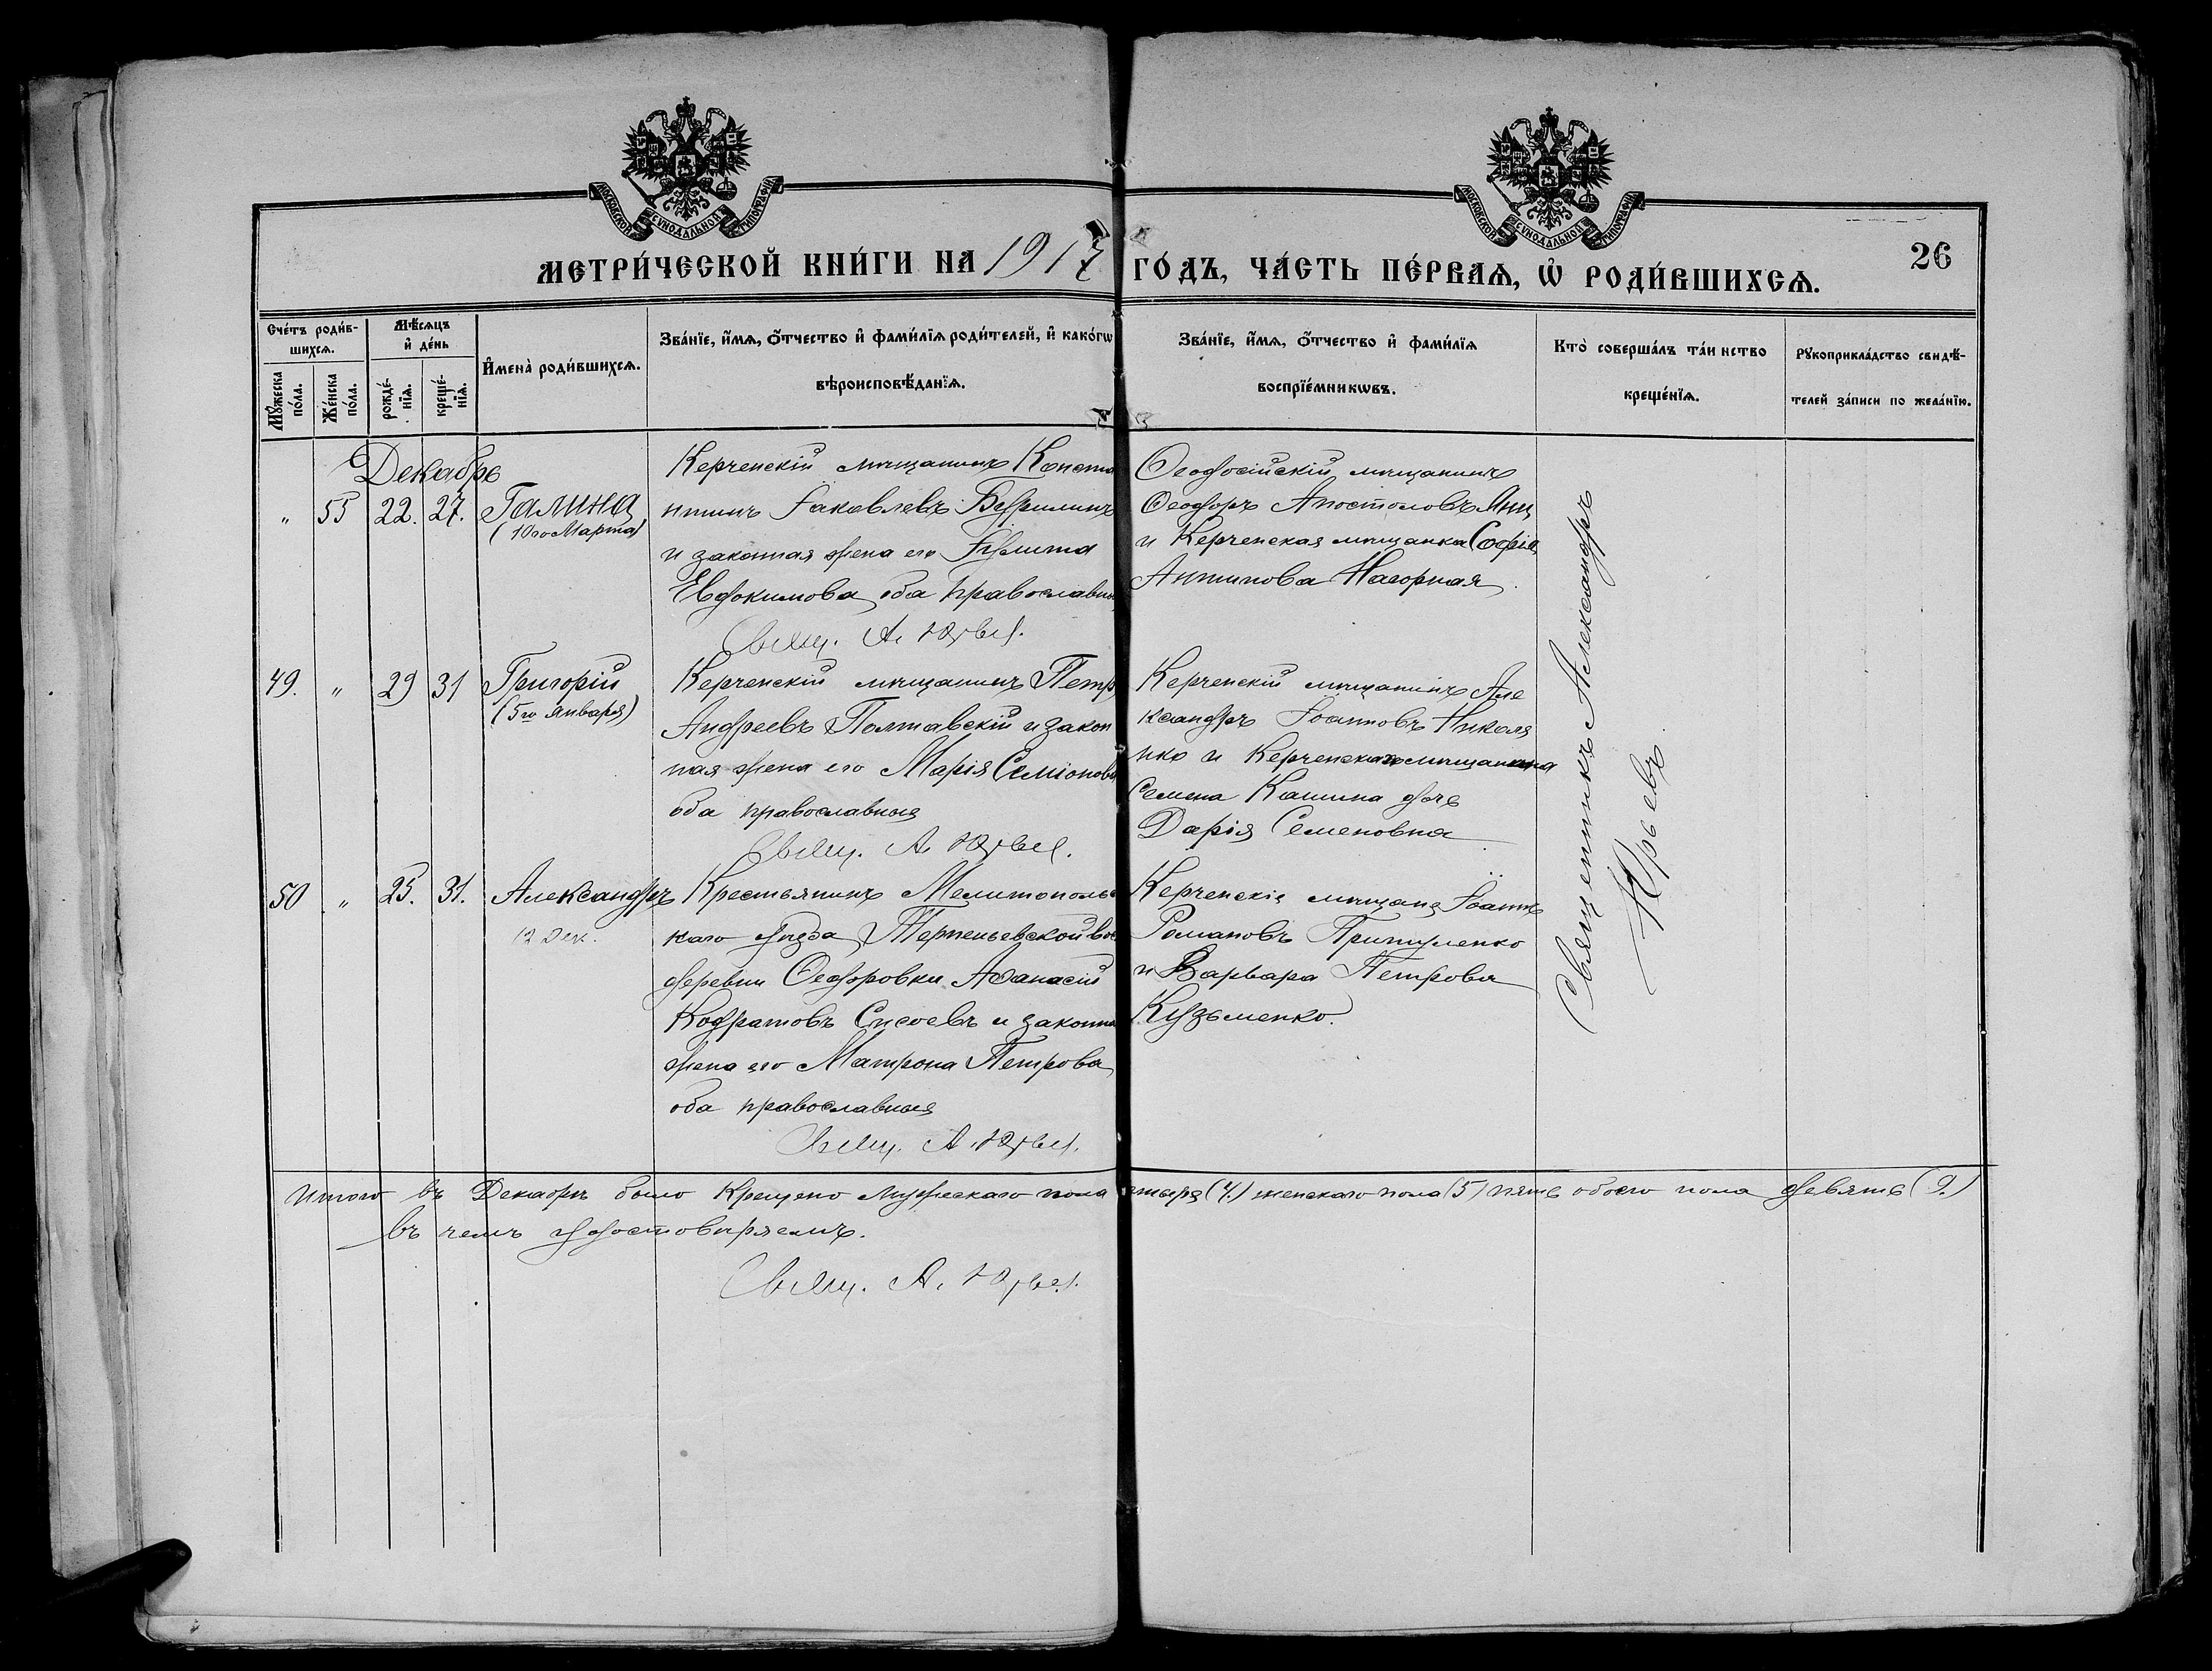 МОСКОВСКОЙ СѴНОДАЛЬНОЙ ТИПОГРАФІИ
МОСКОВСКОЙ СѴНОДАЛЬНОЙ ТИПОГРАФІИ
МЕТРИ́ЧЕСКОЙ КНИ́ГИ НА 1917 ГО́ДЪ, ЧА́СТЬ ПЕ́РВАѦ, Ѡ҆ РОДИ́ВШИХСѦ.
26
Сче́тъ роди́в-
шихсѧ.
Мꙋ́жеска по́ла.
Же́нска по́ла.
Мѣ́сѧцъ и҆ де́нь
рожде́-нїѧ.
креще́-нїѧ.
И҆мена̀ роди́вшихсѧ.
Зва́нїе, и҆́мѧ, ѻ҆́тчество и҆ фами́лїѧ роди́телей, и҆ како́гѡ
вѣроисповѣ́данїѧ.
Зва́нїе, и҆́мѧ, ѻ҆́тчество и҆ фами́лїѧ
воспрїе́мникѡвъ.
Кто̀ соверша́лъ та́инство
креще́нїѧ.
Рꙋкоприкла́дство свидѣ́-
телей за́писи по жела́нїю.
Декабрь
" 55 22. 27. Галина
(10го Марта)
Керченскій мѣщанинъ Конста
нтинъ Іаковлевъ
и законная жена его Іулита
Евдокимова оба православны
Свящ. А. Юрьев.
Ѳеодосійскій мѣщанинъ
Ѳеодоръ Апостоловъ Янц
и Керченская мѣщанка Софія
Антипова Нагорная.
49. " 29 31 Григорій
(5го Января)
Керченскій мѣщанинъ Петр
Андреевъ Полтавскій и закон
ная жена его Марія Семіонова
оба православные
Свящ. А. Юрьев.
Керченскій мѣщанинъ Але
ксандръ Іоанновъ Николя
нко и Керченскаго мѣщанина
Семена Кашина дочь
Дарія Семеновна
50 " 25. 31. Александръ
12 Дек.
Крестьянинъ Мелитопольс
каго уѣзда, Терпеньевской вол
деревни Ѳеодоровки Аѳанасій
Кодратовъ Сысоевъ и законна
жена его Матрона Петрова
оба православные
Свящ. А. Юрьев.
Керченскіе мѣщане Іоаннъ
Романовъ Притуленко
и Варвара Петрова
Кузьменко.
Священникъ Александръ
Юрьевъ.
Итого въ Декабрѣ было крещено мужескаго пола четыре (4.) женскаго пола (5) пять обоего пола девять (9.)
въ чемъ удостовѣряемъ.
Свящ. А. Юрьев.